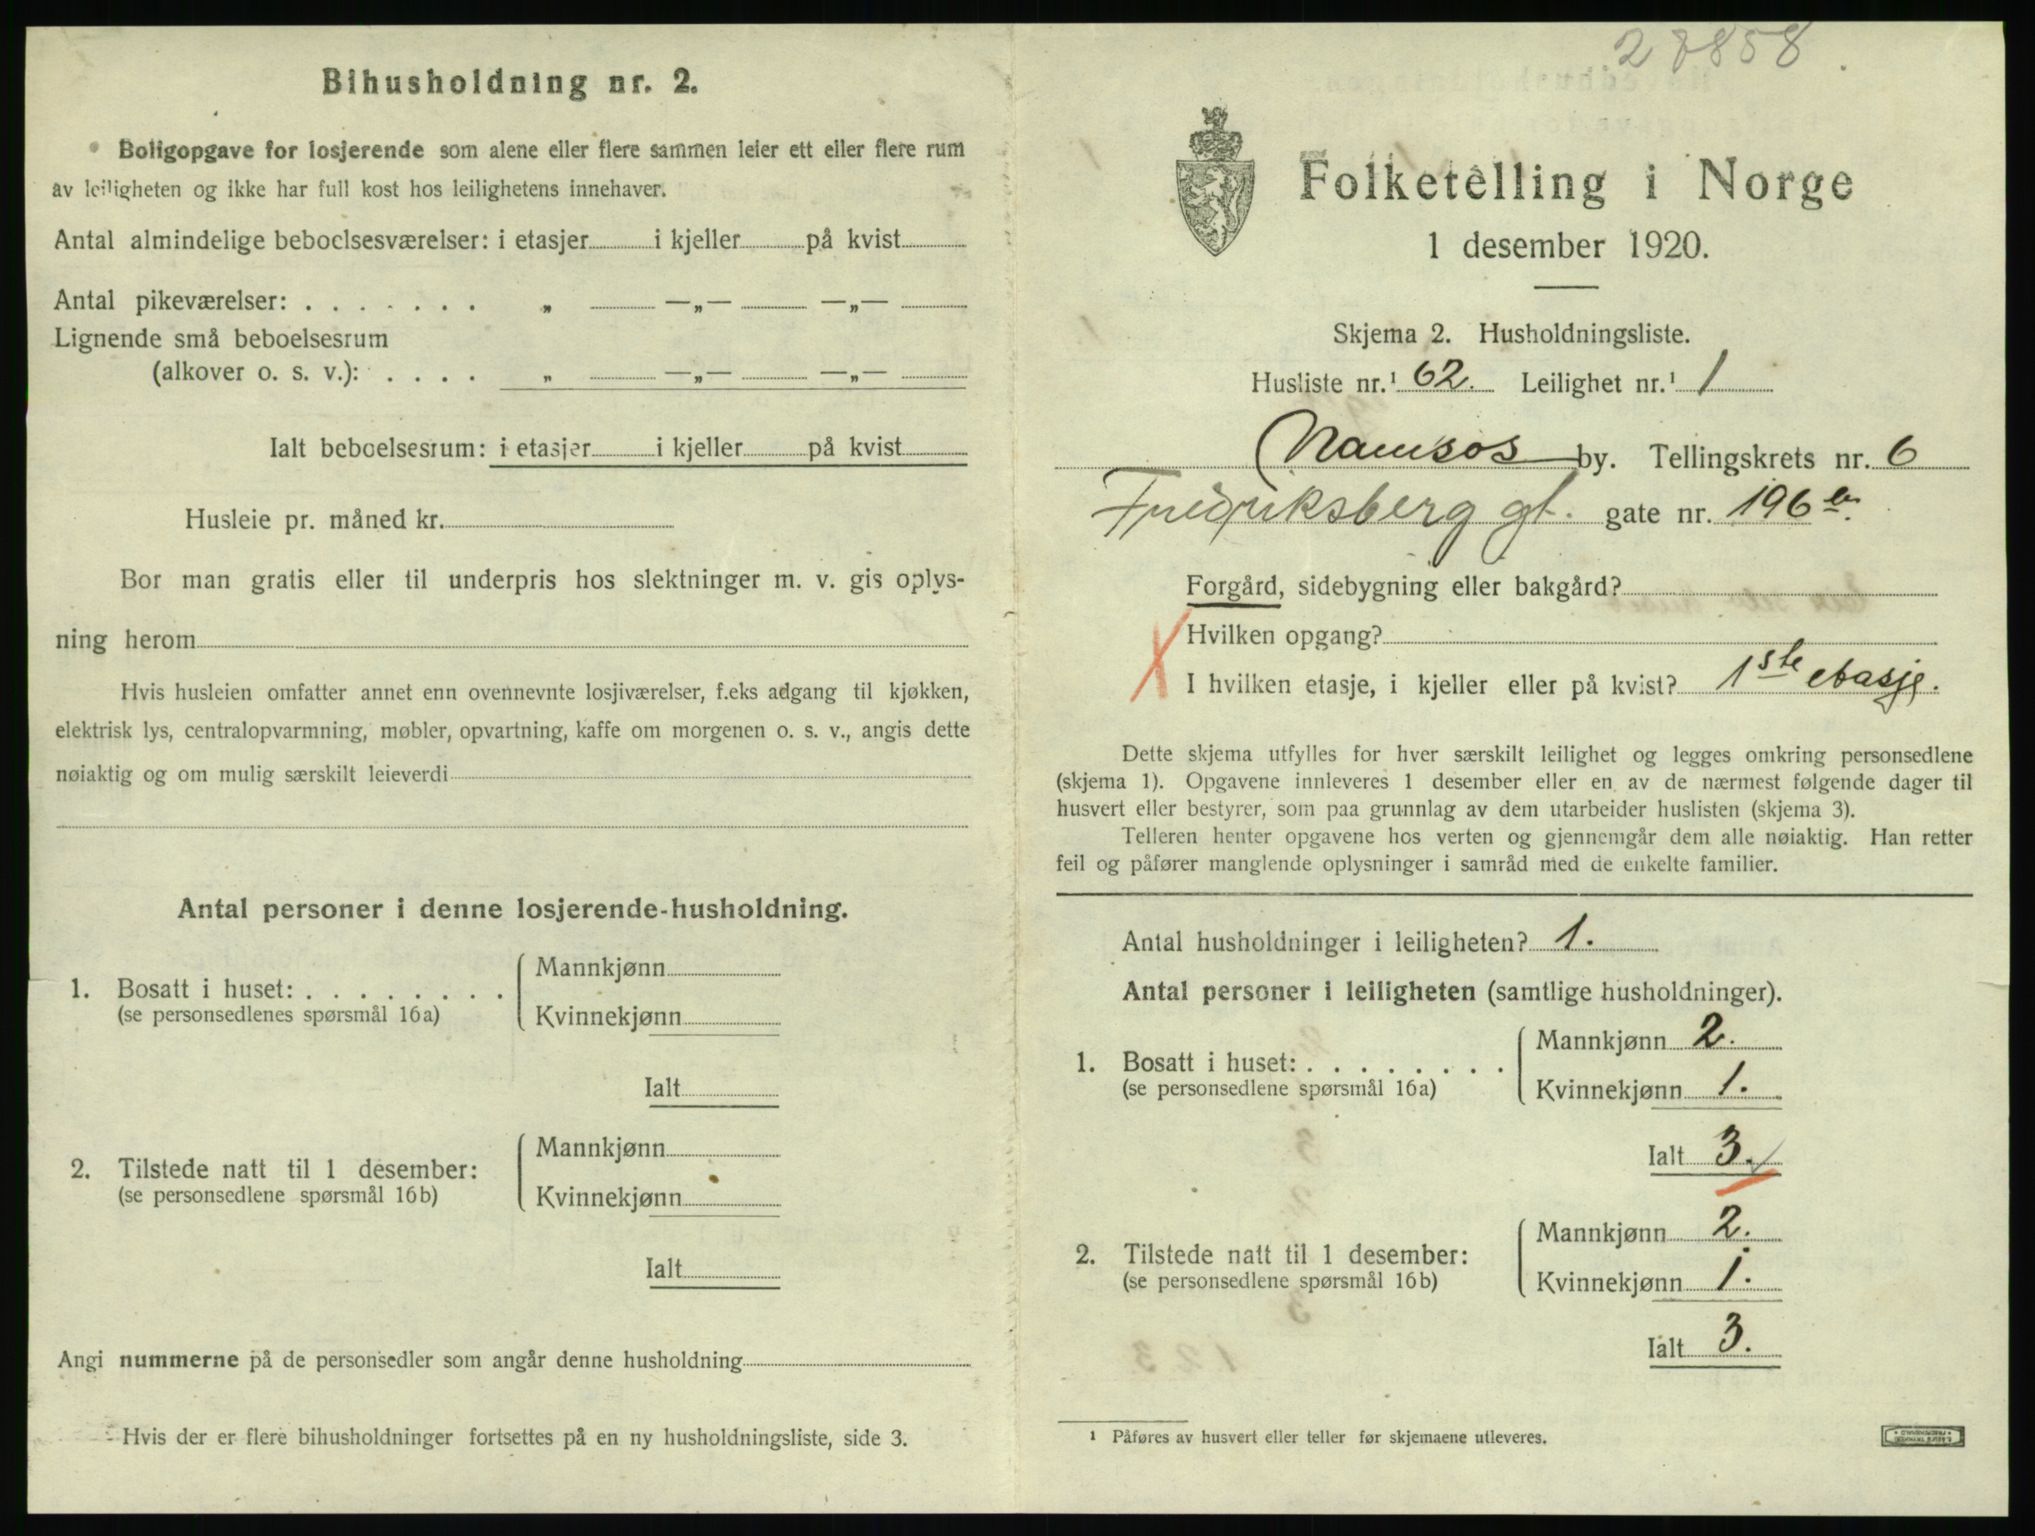 Bihusholdning nr. 2.
Boligopgave for losjerende som alene eller flere sammen leier ett eller flere rum
av leiligheten og ikke har full kost hos leilighetens innehaver.
Antal almindelige beboelsesværelser: i etasjer i kjeller på kvist
Antal pikeværelser: . . . . . . . „ —„— —„—
Lignende små beboelsesrum
(alkover o. s. v.): . . . . „ —„— —„—
Ialt beboelsesrum: i etasjer i kjeller på kvist
Husleie pr. måned kr.
Bor man gratis eller til underpris hos slektninger m. v. gis oplys-
ning herom
Hvis husleien omfatter annet enn ovennevnte losjiværelser, f.eks adgang til kjøkken,
elektrisk lys, centralopvarmning, møbler, opvartning, kaffe om morgenen o. s. v., angis dette
nøiaktig og om mulig særskilt leieverdi
Antal personer i denne losjerende-husholdning.
1. Bosatt i huset: . . . . . . . . Mannkjønn
(se personsedlenes spørsmål 16a) Kvinnekjønn
Ialt
2. Tilstede natt til 1 desember: Mannkjønn
(se personsedlene spørsmål 16b) Kvinnekjønn
Ialt
Angi nummerne på de personsedler som angår denne husholdning
Hvis der er flere bihusholdninger fortsettes på en ny husholdningsliste, side 3.
28858
Folketelling i Norge
1 desember 1920.
Skjema 2. Husholdningsliste.
Husliste nr.¹ 62. Leilighet nr.¹ 1
Namsos by. Tellingskrets nr. 6
Fredriksberg gt. gate nr. 196
Forgård, sidebygning eller bakgård?
Hvilken opgang?
I hvilken etasje, i kjeller eller på kvist? 1ste etasje.
Dette skjema utfylles for hver særskilt leilighet og legges omkring personsedlene
(skjema 1). Opgavene innleveres 1 desember eller en av de nærmest følgende dager til
husvert eller bestyrer, som paa grunnlag av dem utarbeider huslisten (skjema 3).
Telleren henter opgavene hos verten og gjennemgår dem alle nøiaktig. Han retter
feil og påfører manglende oplysninger i samråd med de enkelte familier.
Antal husholdninger i leiligheten? 1.
Antal personer i leiligheten (samtlige husholdninger).
1. Bosatt i huset: . . . . . . . . Mannkjønn 2.
(se personsedlene spørsmål 16a) Kvinnekjønn 1.
Ialt 3.
2. Tilstede natt til 1 desember: Mannkjønn 2.
(se personsedlene spørsmål 16b) Kvinnekjønn 1.
Ialt 3.
¹ Påføres av husvert eller teller før skjemaene utleveres.